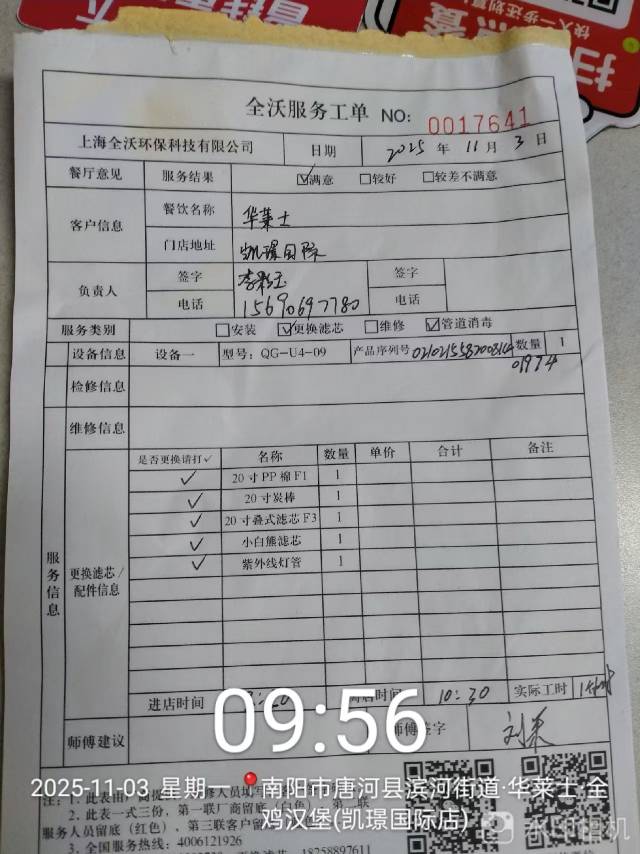 全沃服务工单 NO: 0017641
上海全沃环保科技有限公司 日期 2025 年 11 月 3 日
餐厅意见 服务结果 ☑满意 □较好 □较差不满意
客户信息 餐饮名称 华莱士
门店地址 凯璟国际
负责人 签字 签字
电话 15690697780 电话
服务类别 □安装 ☑更换滤芯 □维修 ☑管道消毒
设备信息 设备一 型号: QG-U4-09 产品序列号 数量 1
01974
检修信息
维修信息
服务信息
更换滤芯/配件信息
是否更换请打✓ 名称 数量 单价 合计 备注
✓ 20寸PP棉F1 1
✓ 20寸炭棒 1
✓ 20寸叠式滤芯F3 1
✓ 小白熊滤芯 1
✓ 紫外线灯管 1
进店时间 离店时间 10:30 实际工时
师傅建议 师傅签字
09:56
2025-11-03 星期一 南阳市唐河县滨河街道·华莱士·全
鸡汉堡(凯璟国际店)
注: 1. 此表由
2. 此表一式三份, 第一联厂商留底(白色)、第二联
服务人员留底(红色), 第三联客户留
3. 全国服务热线: 4006121926
18258897611